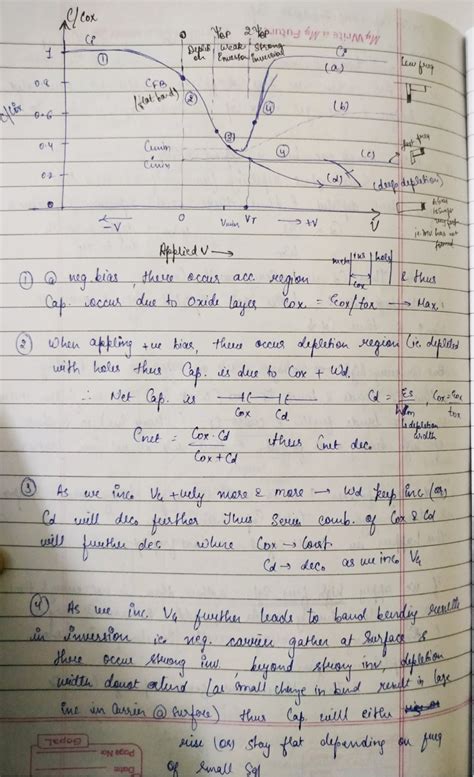 C/Cox
ψBP 2ψBP
My Write My Future
Ci
0 Depleti on weak Inversion Strong Inversion
Ci
Low freq
1
①
(a)
0.8
CFB
(flat band)
②
0.6
④
(b)
C/Cox
③
0.4
Cmin
④
(c)
Cmin
0.2
(d)
(deep depletion)
0
V
←
-V
0
Vmin
VT
→ +V
Applied V →
① @ neg bias, there occur acc region & thus
Cap. occurs due to Oxide layer Cox = Ɛox/tox → Max.
② When appling +ve bias, there occur depletion region (ie. depleted
with holes thus Cap. is due to Cox + Wd.
∴ Net Cap. is
Cox Cd
Cd = Ɛs , Cox = Ɛox
tox
↳ depletion width
Cnet = Cox·Cd thus Cnet dec.
Cox + Cd
③ As we inc. VG +vely more & more → Wd keep Inc. (or)
Cd will dec. further Thus Series comb. of Cox & Cd
will further dec where Cox → Const
Cd → dec. as we inc. VG
④ As we Inc. VG further leads to band bending results
in inversion ie. neg. carrier gather at Surface &
there occur strong inv, beyond strong inv, depletion
width donot extend (as small change in bend result in large
Inc in Carrier @ surface) thus Cap. will either
rise (or) stay flat depending on freq
of small sgl
Gopal
Page No:
Date